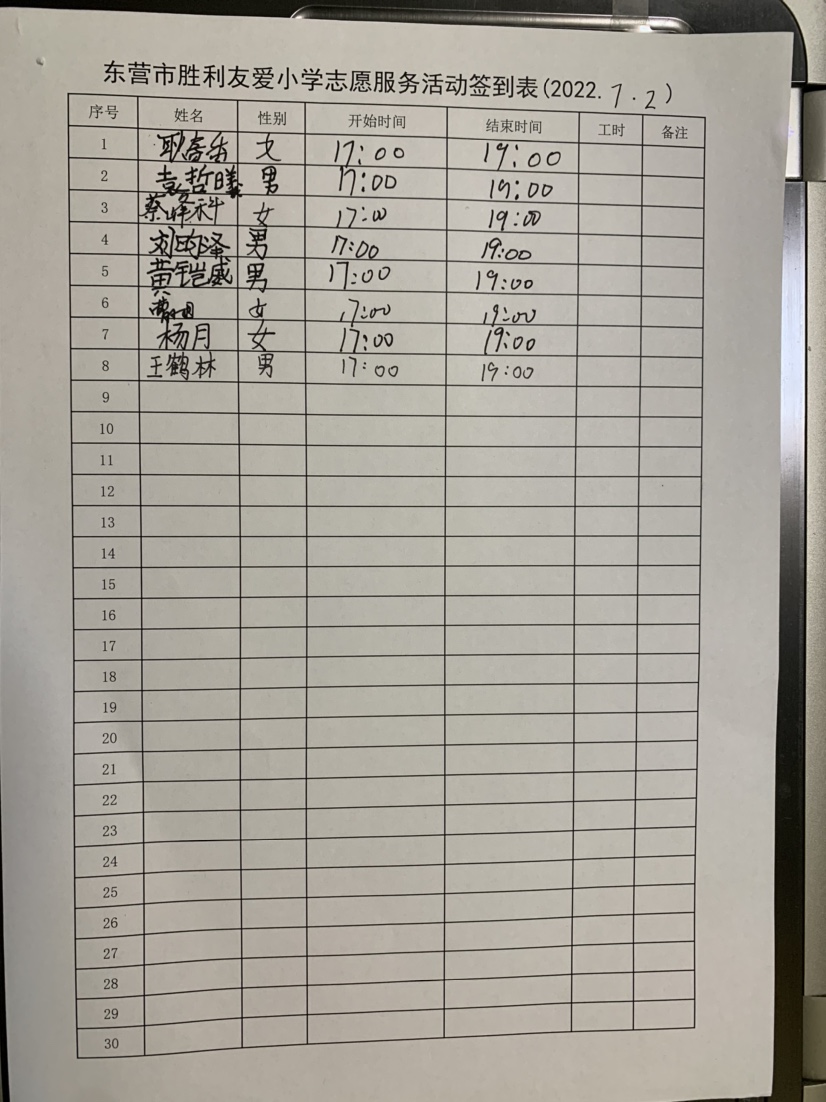 东营市胜利友爱小学志愿服务活动签到表(2022.7.2)
序号 姓名 性别 开始时间 结束时间 工时 备注
1 耿春香 女 17:00 19:00
2 袁哲曦 男 17:00 19:00
3 蔡峰科 女 17:00 19:00
4 刘昀泽 男 17:00 19:00
5 黄铠威 男 17:00 19:00
6 女 17:00 19:00
7 杨月 女 17:00 19:00
8 王鹤林 男 17:00 19:00
9
10
11
12
13
14
15
16
17
18
19
20
21
22
23
24
25
26
27
28
29
30